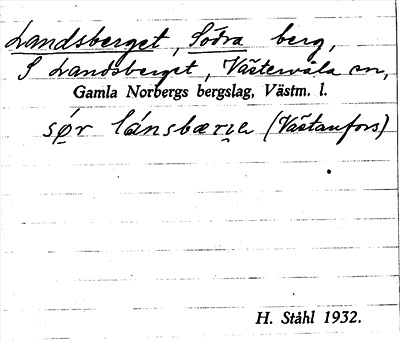 Landsberget, Södra berg,
S Landsberget, Västervåla sn,
Gamla Norbergs bergslag, Västm. l.
sǿ̱r lánsbærı̣e (Västanfors)
H. Ståhl 1932.